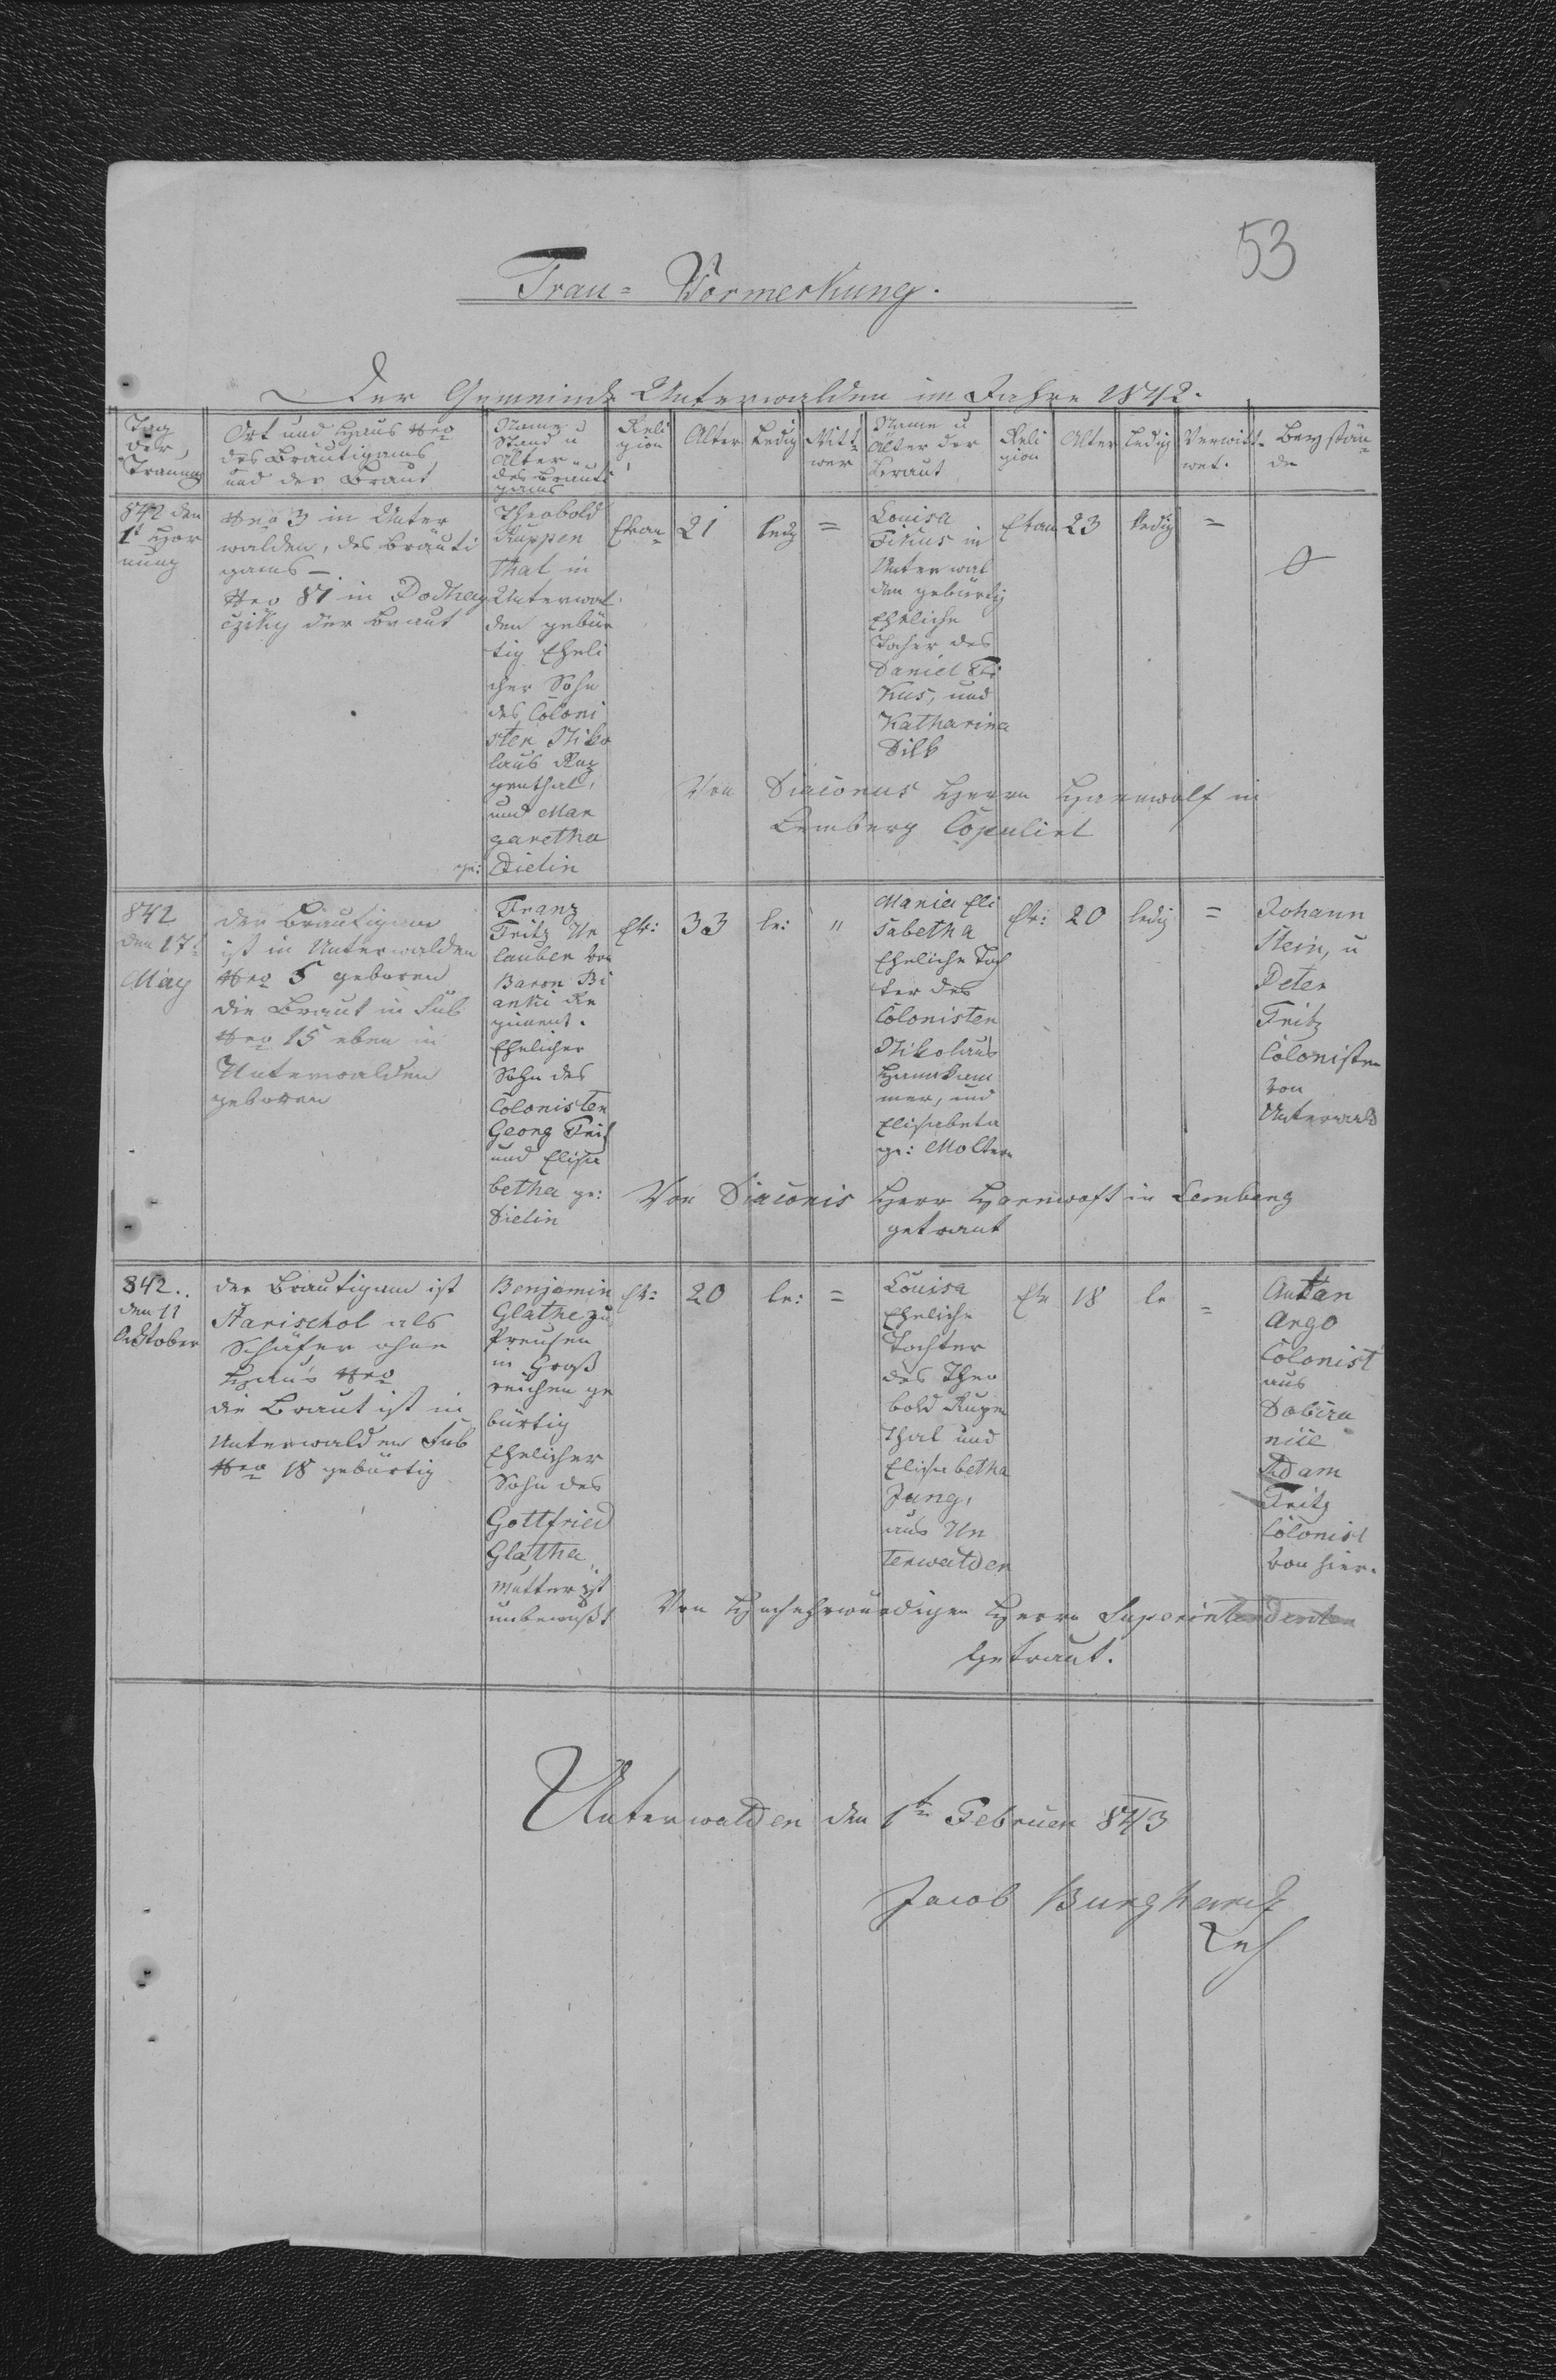 53
Trau = Vormerkung.
Der Gemeinde Unterwalden im Jahre 1842.
Tag
der
Trauung
Ort und Haus Nro
des Bräutigams
und der Braut
Name u
Stand u
Alter
des Bräuti
gams
Reli
gion
Alter
Ledig
Witt-
wer
Name u
Alter der
Braut
Reli
gion
Alter
Ledig
Verwitt-
wet.
Beystän-
de
842 den
1t Hor
nung
Nro 3 in Unter
walden, des Bräuti
gams –
Nro 87 in
der Braut
Theobold
Ruppen
thal in
Unterwal
den gebür
tig Eheli
cher Sohn
des Coloni
sten Niko
laus Rup
penthal,
und Mar
garetha
ge: Dielin
Evan-
21
ledig
=
Louisa
Filius in
Unterwal
den gebürtig
Eheliche
Tochter des
Daniel
und
Katharina
Dilk
Evan
23
ledig
=
Von Diaconus Herrn in
Lemberg Copuliet
842
den 17t
May
der Bräutigam
ist in Unterwalden
Nro 5 geboren
die Braut in Sub
Nro 15 eben in
Unterwalden
geboren
Franz
Fritz Ur
lauber von
Baron Bi
anki Re
giment.
Ehelicher
Sohn des
Colonisten
Georg Fritz
und Elisa
betha ge:
Dielin
Ev:
33
le:
"
Maria Eli
sabetha
Eheliche Toch
ter des
Colonisten
Nikolaus
mer, und
Elisabeta
ge:
Ev:
20
ledig
=
Johann
Stein, u
Peter
Fritz
Colonisten
von
Unterwald
Von Diaconis Herr in Lemberg
getraut
842..
den 11
Oktober
der Bräutigam ist
als
Schäfer ohne
Haus Nro
die Braut ist in
Unterwalden Sub
Nro 18 gebürtig
Benjamin
Glathe zu
Preusen
in Groß
reichen ge
bürtig
Ehelicher
Sohn des
Gottfried
Glathe,
Mutter ist
unbewußt
Ev:
20
le:
=
Louisa
Eheliche
Tochter
des Theo
bold Rupen
thal und
Elisabetha
Jung,
aus Un
terwalden
Ev
18
le
=
Antan
Argo
Colonist
aus
Adam
Fritz
Colonist
von hier.
Von Hochehrwürdigen Herrn Superintendenten
Getraut.
Unterwalden den 1ten Februar 843
Jacob Burghardt